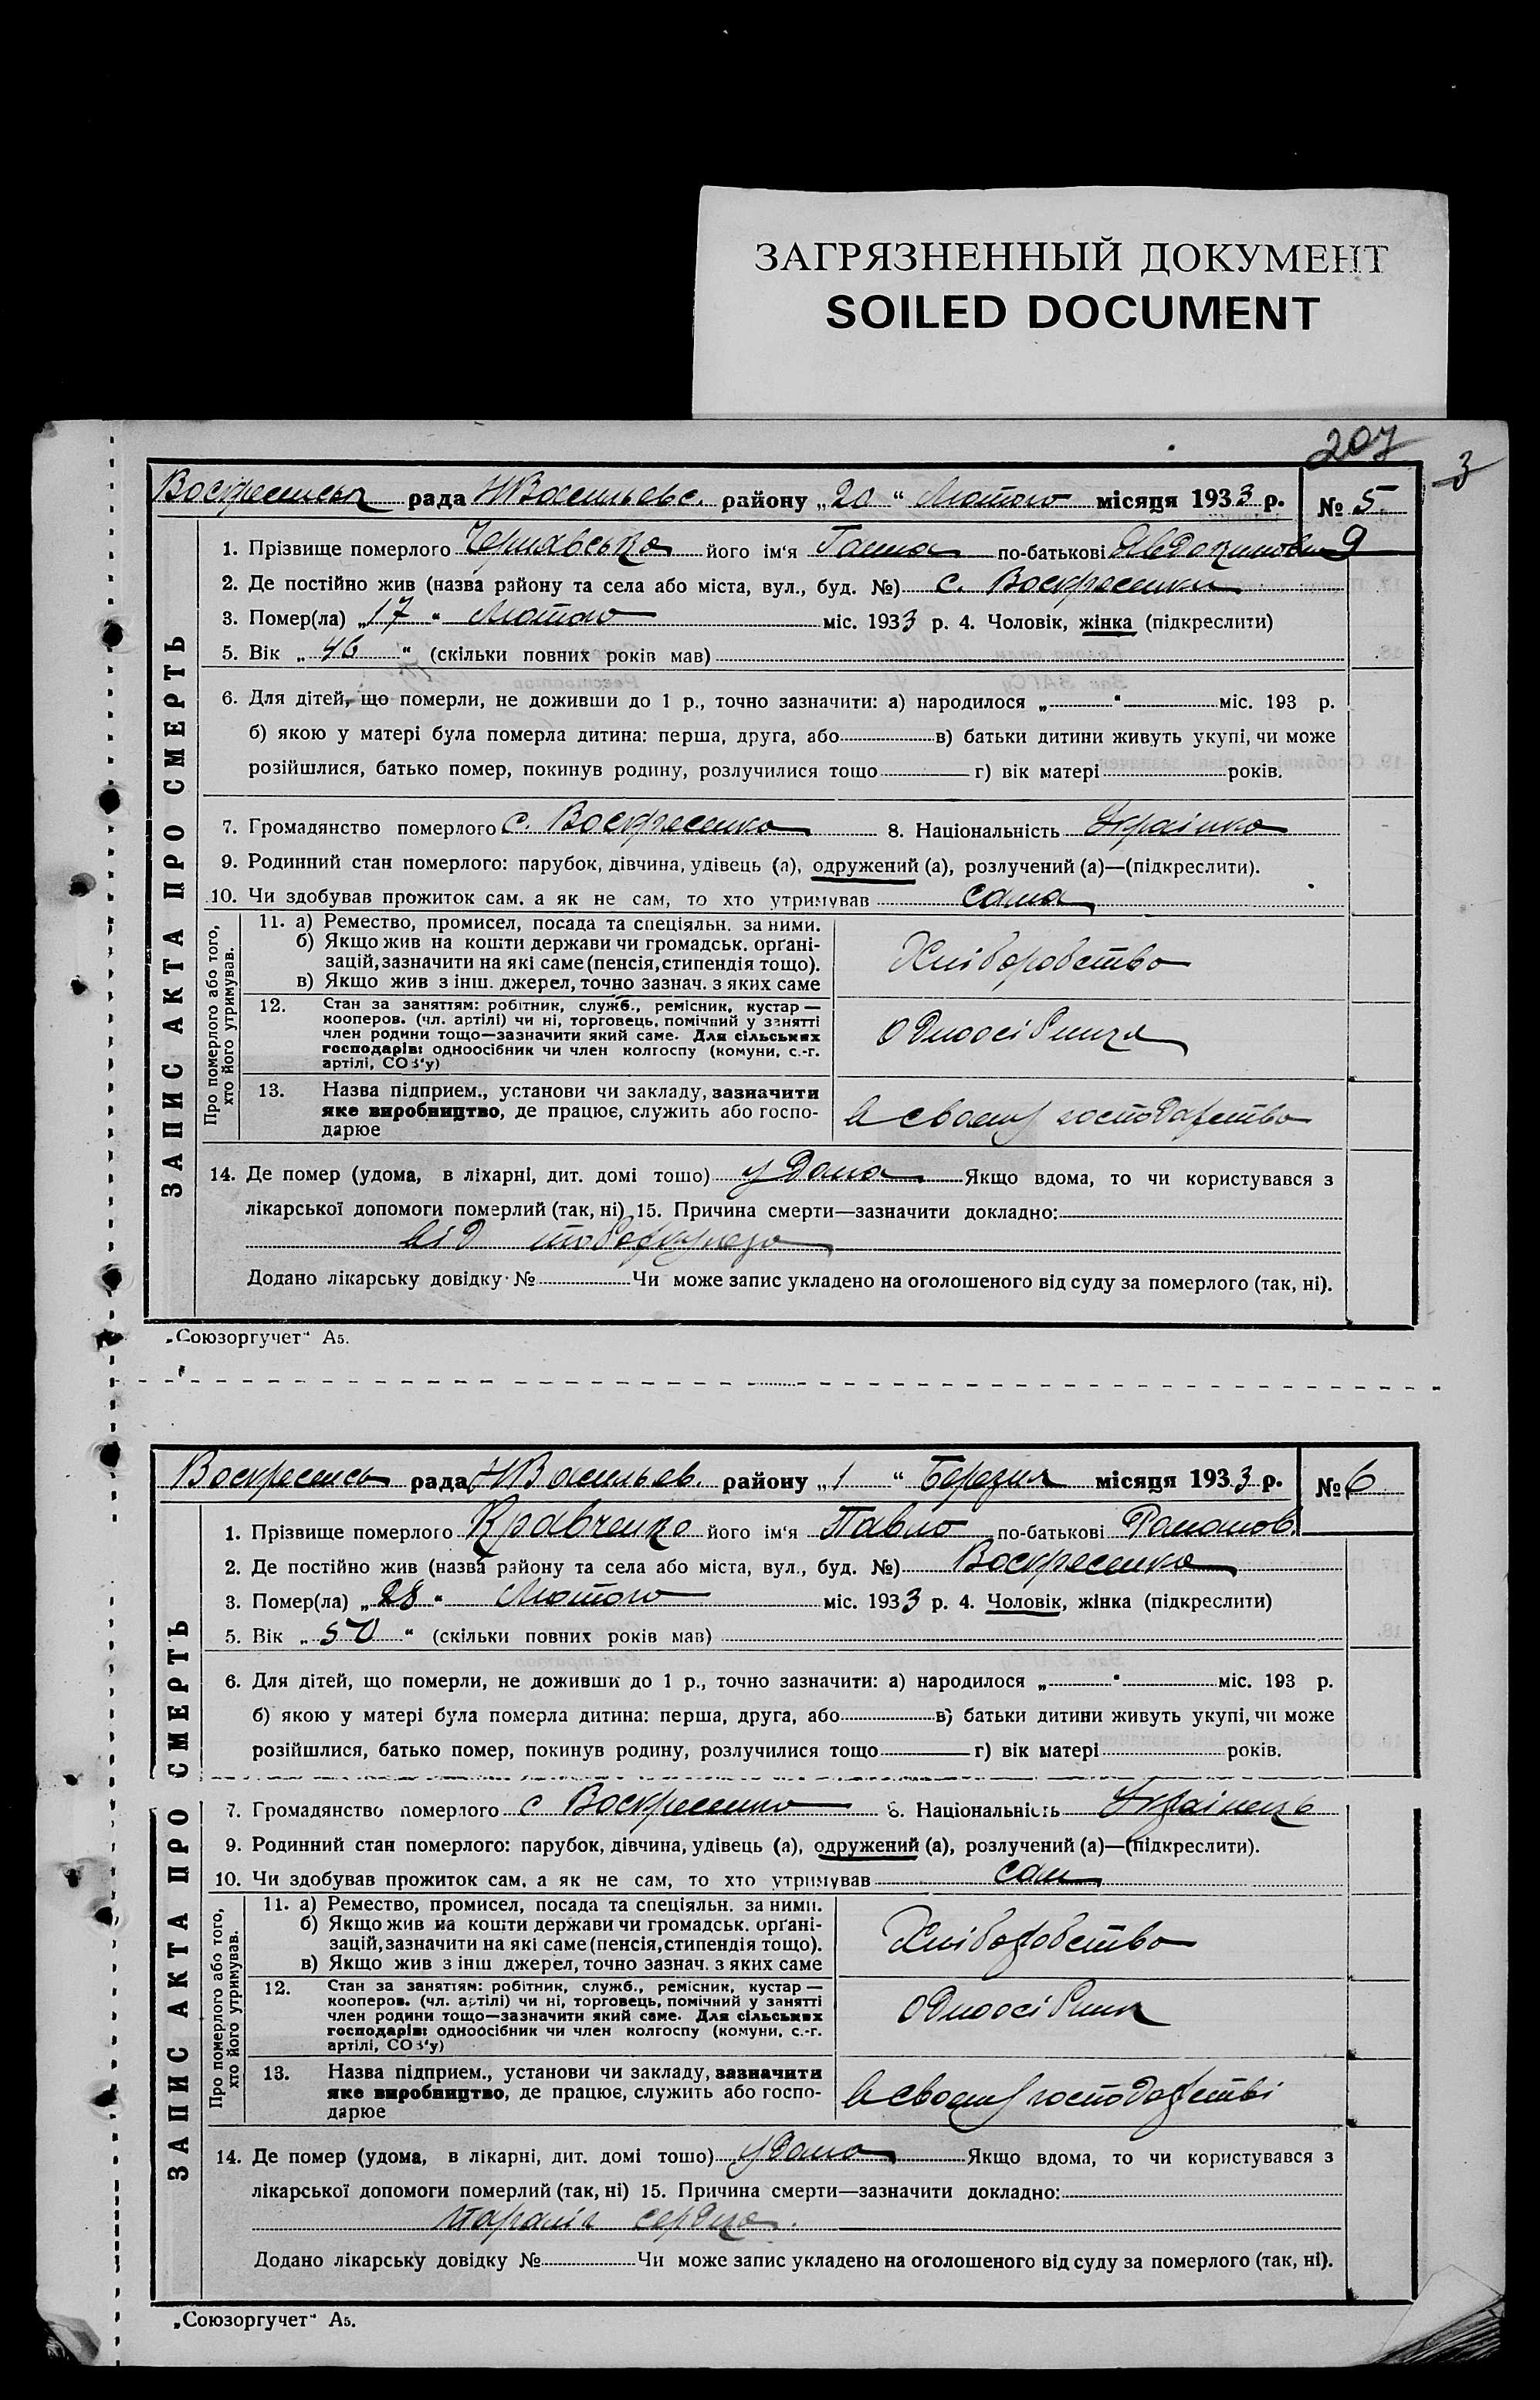 ЗАГРЯЗНЕННЫЙ ДОКУМЕНТ
SOILED DOCUMENT
207
3
ЗАПИС АКТА ПРО СМЕРТЬ
Воскресенськ рада НВасильевс. району „20“ Лютого місяця 1933 р. № 5
1. Прізвище померлого Чернявська його ім'я Ганна по-батькові Явдокимовн 9
2. Де постійно жив (назва району та села або міста, вул., буд. №) с. Воскресенки
3. Помер(ла) „17“ Лютого міс. 1933 р. 4. Чоловік, жінка (підкреслити)
5. Вік „46“ (скільки повних років мав)
6. Для дітей, що померли, не доживши до 1 р., точно зазначити: а) народилося „ “ міс. 193 р.
б) якою у матері була померла дитина: перша, друга, або в) батьки дитини живуть укупі, чи може
розійшлися, батько помер, покинув родину, розлучилися тощо г) вік матері років.
7. Громадянство померлого с. Воскресенка 8. Національність Українка
9. Родинний стан померлого: парубок, дівчина, удівець (а), одружений (а), розлучений (а)—(підкреслити).
10. Чи здобував прожиток сам, а як не сам, то хто утримував сама
Про померлого або того, хто його утримував.
11. а) Ремество, промисел, посада та спеціяльн. за ними.
б) Якщо жив на кошти держави чи громадськ. орґані-
зацій, зазначити на які саме (пенсія, стипендія тощо).
в) Якщо жив з інш. джерел, точно зазнач. з яких саме
Хліборобство
12. Стан за заняттям: робітник, служб., ремісник, кустар —
кооперов. (чл. артілі) чи ні, торговець, помічний у занятті
член родини тощо—зазначити який саме. Для сільських
господарів: одноосібник чи член колгоспу (комуни, с.-г.
артілі, СОЗ'у)
Одноосібниця
13. Назва підприєм., установи чи закладу, зазначити
яке виробництво, де працює, служить або госпо-
дарює
в своему господарство
14. Де помер (удома, в ліхарні, дит. домі тошо) у дома Якщо вдома, то чи користувався з
лікарської допомоги померлий (так, ні) 15. Причина смерти—зазначити докладно:
від
Додано лікарську довідку № Чи може запис укладено на оголошеного від суду за померлого (так, ні).
„Союзоргучет“ А5.
ЗАПИС АКТА ПРО СМЕРТЬ
Воскресенсь рада НВасильев. району „1“ Березня місяця 1933 р. № 6
1. Прізвище померлого Кравченко його ім'я Павло по-батькові Романов.
2. Де постійно жив (назва району та села або міста, вул., буд. №) Воскресенка
3. Помер(ла) „28“ Лютого міс. 1933 р. 4. Чоловік, жінка (підкреслити)
5. Вік „50“ (скільки повних років мав)
6. Для дітей, що померли, не доживши до 1 р., точно зазначити: а) народилося „ “ міс. 193 р.
б) якою у матері була померла дитина: перша, друга, або в) батьки дитини живуть укупі, чи може
розійшлися, батько помер, покинув родину, розлучилися тощо г) вік матері років.
7. Громадянство померлого с Воскресенка 8. Національність Українець
9. Родинний стан померлого: парубок, дівчина, удівець (а), одружений (а), розлучений (а)—(підкреслити).
10. Чи здобував прожиток сам, а як не сам, то хто утримував сам
Про померлого або того, хто його утримував.
11. а) Ремество, промисел, посада та спеціяльн. за ними.
б) Якщо жив на кошти держави чи громадськ. орґані-
зацій, зазначити на які саме (пенсія, стипендія тощо).
в) Якщо жив з інш джерел, точно зазнач. з яких саме
Хліборобство
12. Стан за заняттям: робітник, служб., ремісник, кустар —
кооперов. (чл. артілі) чи ні, торговець, помічний у занятті
член родини тощо—зазначити який саме. Для сільських
господарів: одноосібник чи член колгоспу (комуни, с.-г.
артілі, СОЗ'у)
Одноосібник
13. Назва підприєм., установи чи закладу, зазначити
яке виробництво, де працює, служить або госпо-
дарює
в своему господарстві
14. Де помер (удома, в лікарні, дит. домі тошо) у дома Якщо вдома, то чи користувався з
лікарської допомоги померлий (так, ні) 15. Причина смерти—зазначити докладно:
параліч сердця.
Додано лікарську довідку № Чи може запис укладено на оголошеного від суду за померлого (так, ні).
„Союзоргучет“ А5.